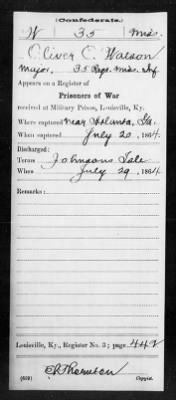 (Confederate.)
W 35 Miss.
Oliver C. Watson
Major, 35 Reg. Miss. Inf.
Appears on a Register of
Prisoners of War
received at Military Prison, Louisville, Ky.
Where captured near Atlanta, Ga.
When captured July 20, 1864.
Discharged:
Terms Johnsons Isle
When July 29, 1864
Remarks:
Louisville, Ky., Register No. 3; page 442
Copyist.